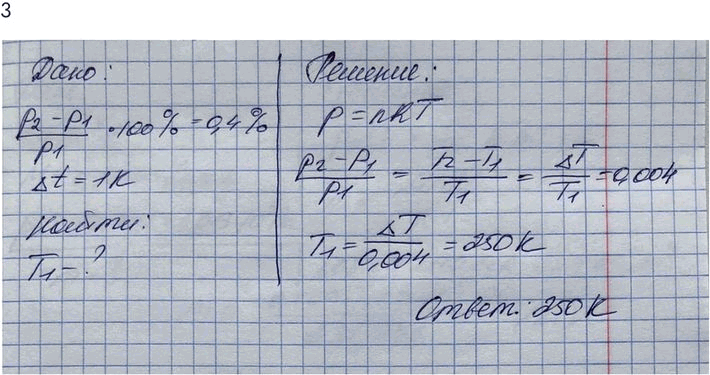 3
Дано:
(p2 - p1)/p1 · 100% = 0,4%
Δt = 1K
Найти:
T1 - ?
Решение:
p = nKT
(p2 - p1)/p1 = (T2 - T1)/T1 = ΔT/T1 = 0,004
T1 = ΔT/0,004 = 250K
Ответ: 250K